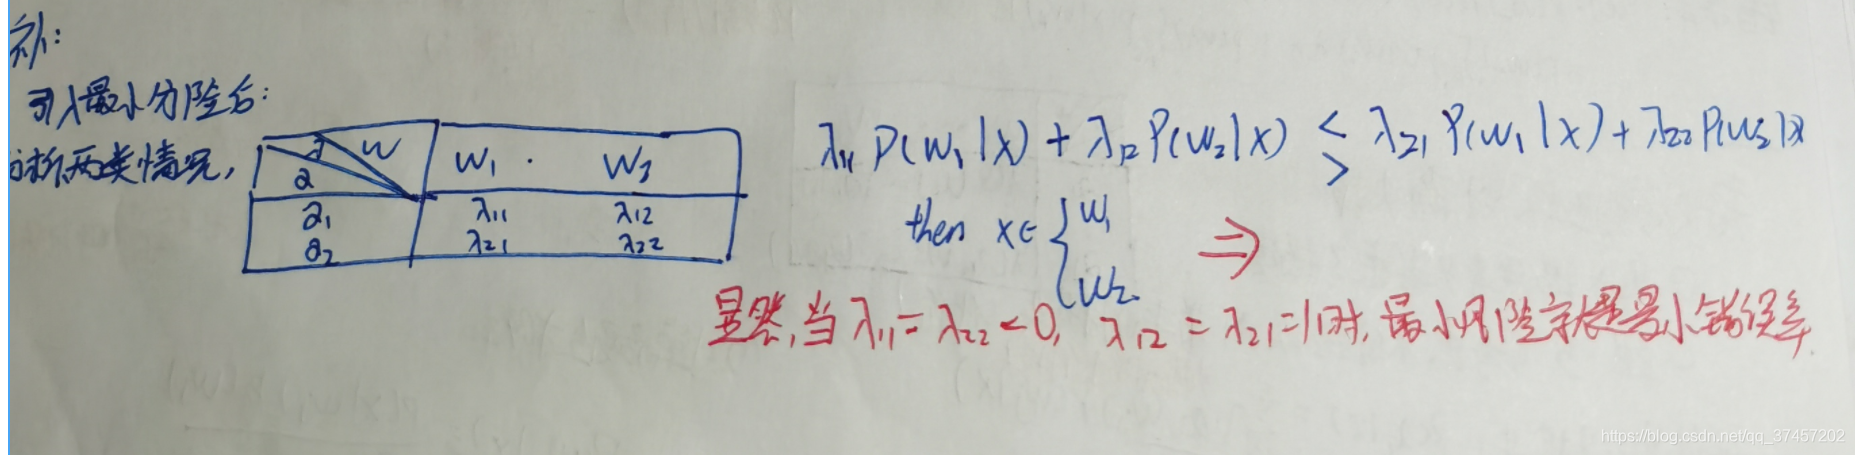 补:
引入最小分险后:
分析两类情况,
λ w
a w₁ . w₂
a₁ λ₁₁ λ₁₂
a₂ λ₂₁ λ₂₂
λ₁₁ P(w₁|x) + λ₁₂ P(w₂|x) ≶ λ₂₁ P(w₁|x) + λ₂₂ P(w₂|x)
then x∈ { w₁
w₂.
⇒
显然,当 λ₁₁ = λ₂₂ = 0, λ₁₂ = λ₂₁ = 1时, 最小风险就是最小错误率.
https://blog.csdn.net/qq_37457202